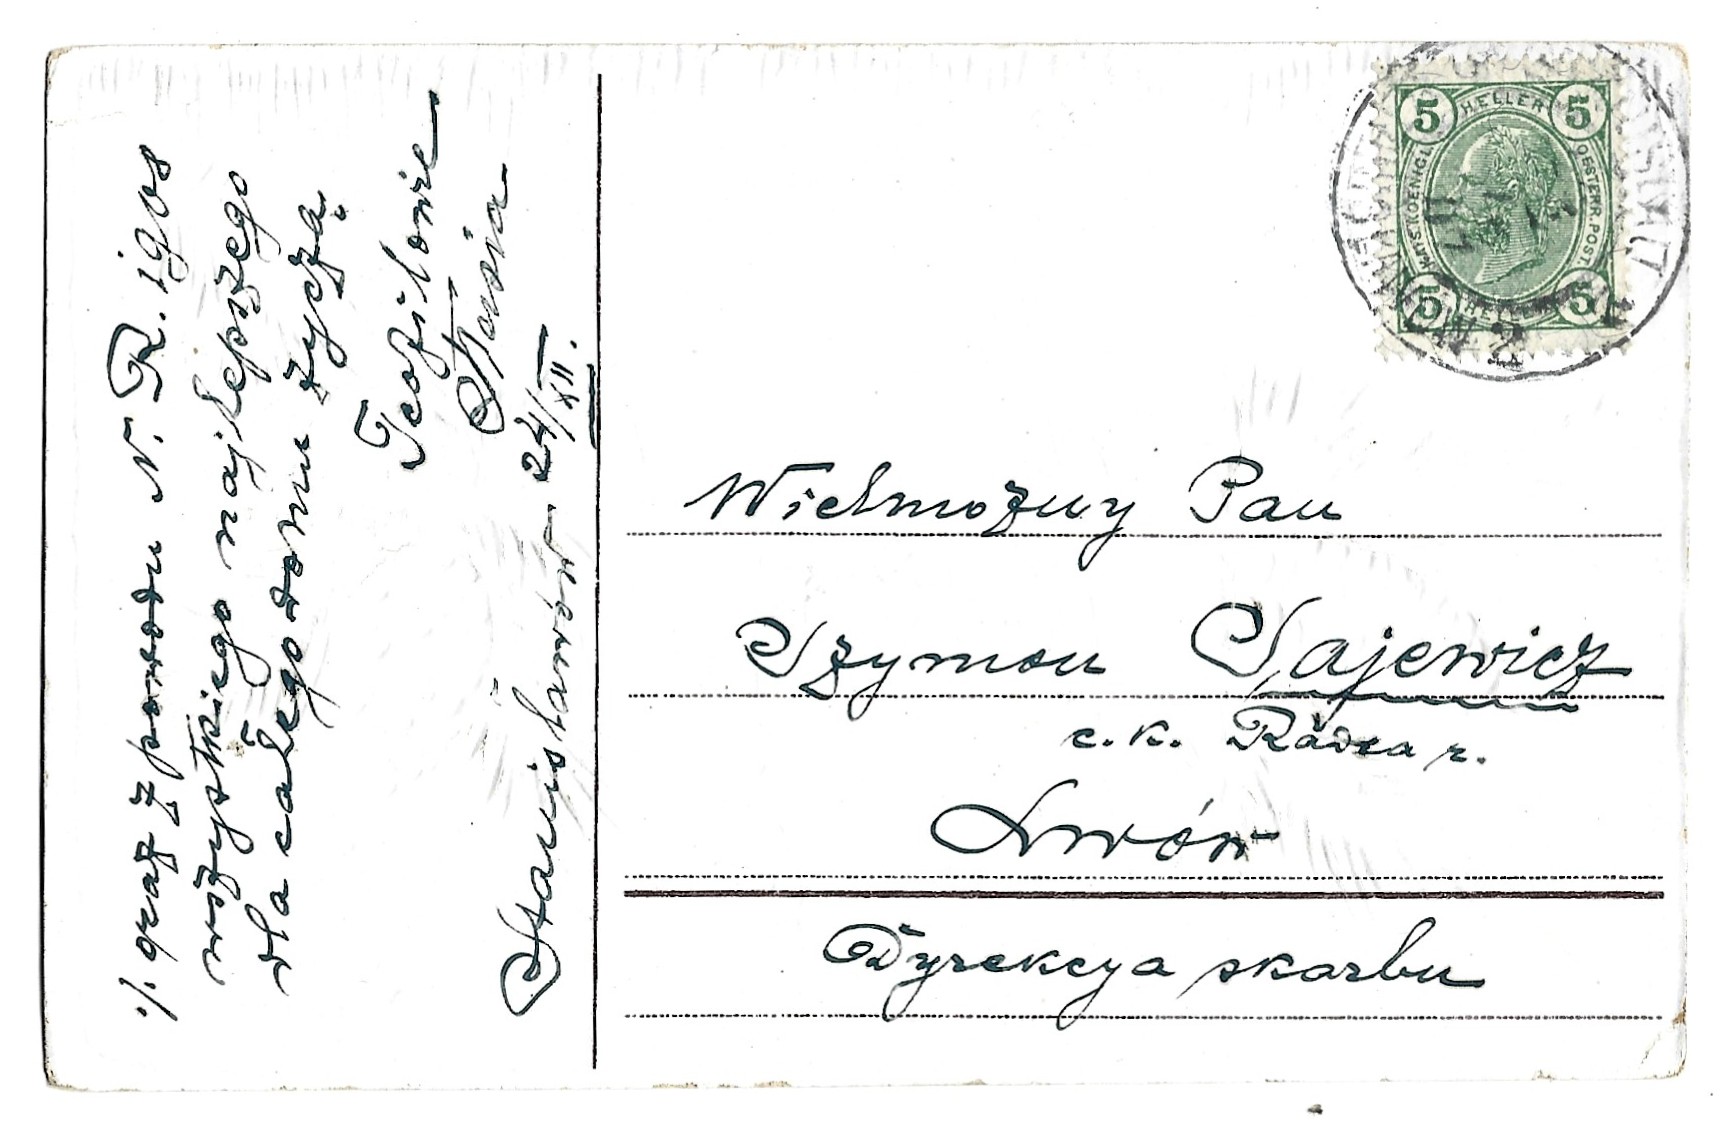 i/. oraz z powodu N. R. 1908
wszystkiego najlepszego
dla całego domu życzą
Teofilowie
Stanisławów 24/XII.
Wielmożny Pan
Szymon Sajewicz
c. k. Radca r.
Lwów
Dyrekcya skarbu
5 HELLER 5
KAIS. KOENIGL. OESTERR. POST.
5 HELLER 5